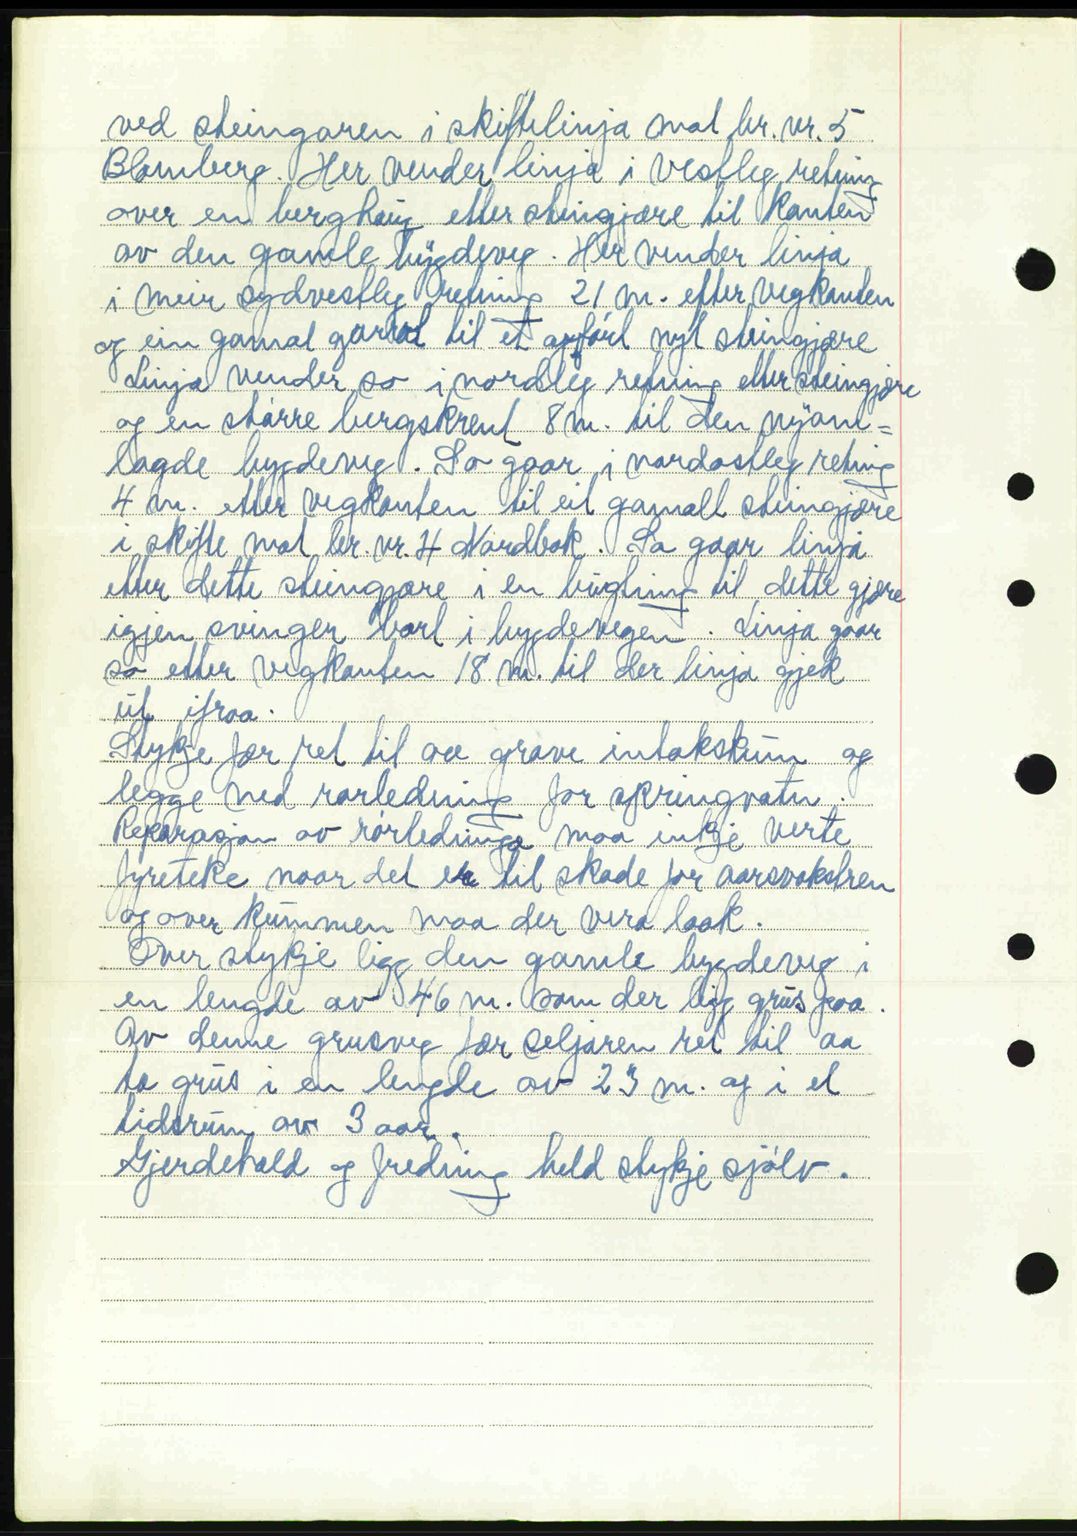 ved steingaren i skiftelinja mot br. nr. 5
Blomberg. Her vender linja i vestleg retning
over en berghaug etter steingjære til kanten
av den gamle bygdeveg. Her vender linja
i meir sydvestleg retning 21 m. etter vegkanten
og ein gamal garrot til et opført nyt steingjære
Linja vender so i nordleg retning etter steingjære
og en større bergskrent 8 m. til den nyan=
lagde bygdeveg. So gaar i nordostleg retning
4 m. etter vegkanten til eit gamalt steingjære
i skifte mot br. nr. 4 Nordbak. So gaar linja
etter dette steingjære i en bugtning til dette gjære
igjen svinger bort i bygdevegen. Linja gaar
so etter vegkanten 18 m. til der linja gjek
ut ifraa.
Stykje fær ret til aa grave intakskum og
legge ned rørledning for springvatn.
Reparasjon av rørledninga maa inkje verte
fyreteke naar det er til skade for aarsvoksteren
og over kummen maa der vera laak.
Over stykje ligg den gamle bygdeveg i
en lengde av 46 m. som der ligg grus paa.
Av denne grusveg fær seljaren ret til aa
ta grus i en lengde av 23 m. og i et
tidsrum av 3 aar.
Gjerdehald og fredning held stykje sjølv.